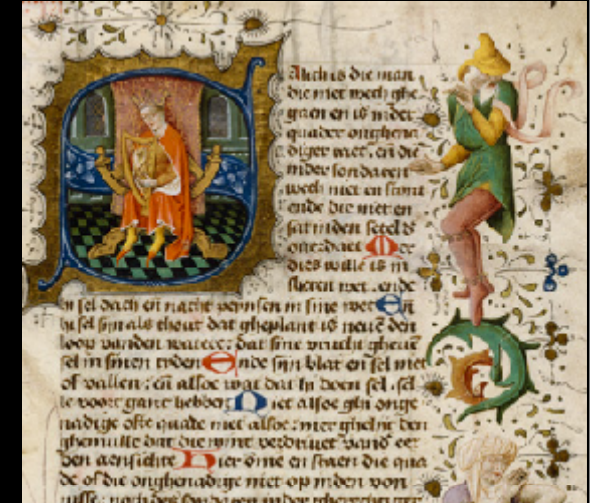 Alich is die man
die niet wech ghe
gaen en is inder
quader onghena
diger raet. en die
inder sondaren
wech niet en stont
ende die niet en
sat inden setel d
ongedaet Mer
dies wille is in
sheren wet. ende
hi sel dach en nacht peynsen in sine wet En
hi sel sijn als thout dat gheplant is neue den
loop vanden water: dat sine vrucht gheue
sel in sinen tyden Ende sijn blat en sel niet
of vallen: en alsoe wat dat hi doen sel. sel
le voort gane hebben Niet alsoe ghi onge
nadige ofte quade niet alsoe: mer ghelijc den
ghemulle dat die wint verdriuet vand eer
den aensichte Hier ome en staen die qua
de of die onghenadige niet op inden von
nisse: noch den